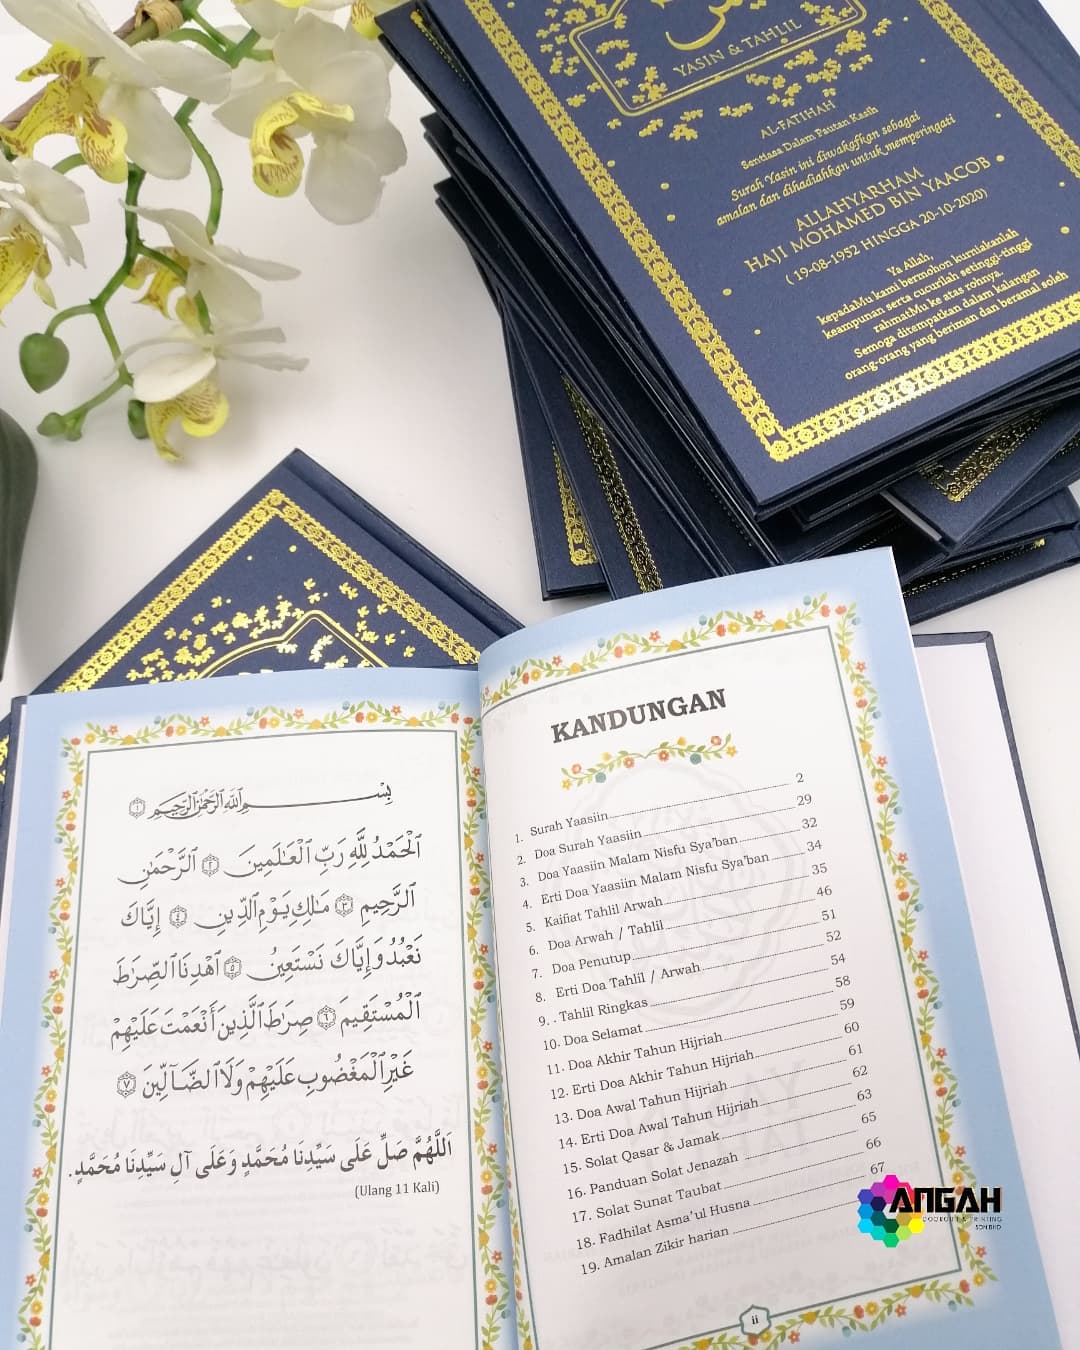 YASIN & TAHLIL
AL-FATIHAH
Sentiasa Dalam Pautan Kasih
Surah Yasin ini diwakafkan sebagai
amalan dan dihadiahkan untuk memperingati
ALLAHYARHAM
HAJI MOHAMED BIN YAACOB
( 19-08-1952 HINGGA 20-10-2020)
Ya Allah,
kepadaMu kami bermohon kurniakanlah
keampunan serta cucurilah setinggi-tinggi
rahmatMu ke atas rohnya.
Semoga ditempatkan dalam kalangan
orang-orang yang beriman dan beramal soleh
بِسْمِ ٱللَّهِ ٱلرَّحْمَٰنِ ٱلرَّحِيمِ ١
ٱلْحَمْدُ لِلَّهِ رَبِّ ٱلْعَٰلَمِينَ ٢ ٱلرَّحْمَٰنِ
ٱلرَّحِيمِ ٣ مَٰلِكِ يَوْمِ ٱلدِّينِ ٤ إِيَّاكَ
نَعْبُدُ وَإِيَّاكَ نَسْتَعِينُ ٥ ٱهْدِنَا ٱلصِّرَٰطَ
ٱلْمُسْتَقِيمَ ٦ صِرَٰطَ ٱلَّذِينَ أَنْعَمْتَ عَلَيْهِمْ
غَيْرِ ٱلْمَغْضُوبِ عَلَيْهِمْ وَلَا ٱلضَّآلِّينَ ٧
اَللَّهُمَّ صَلِّ عَلَى سَيِّدِنَا مُحَمَّدٍ وَعَلَى آلِ سَيِّدِنَا مُحَمَّدٍ.
(Ulang 11 Kali)
KANDUNGAN
1. Surah Yaasiin 2
2. Doa Surah Yaasiin 29
3. Doa Yaasiin Malam Nisfu Sya'ban 32
4. Erti Doa Yaasiin Malam Nisfu Sya'ban 34
5. Kaifiat Tahlil Arwah 35
6. Doa Arwah / Tahlil 46
7. Doa Penutup 51
8. Erti Doa Tahlil / Arwah 52
9. . Tahlil Ringkas 54
10. Doa Selamat 58
11. Doa Akhir Tahun Hijriah 59
12. Erti Doa Akhir Tahun Hijriah 60
13. Doa Awal Tahun Hijriah 61
14. Erti Doa Awal Tahun Hijriah 62
15. Solat Qasar & Jamak 63
16. Panduan Solat Jenazah 65
17. Solat Sunat Taubat 66
18. Fadhilat Asma'ul Husna 67
19. Amalan Zikir harian
ii
ANGAH
SDN BHD